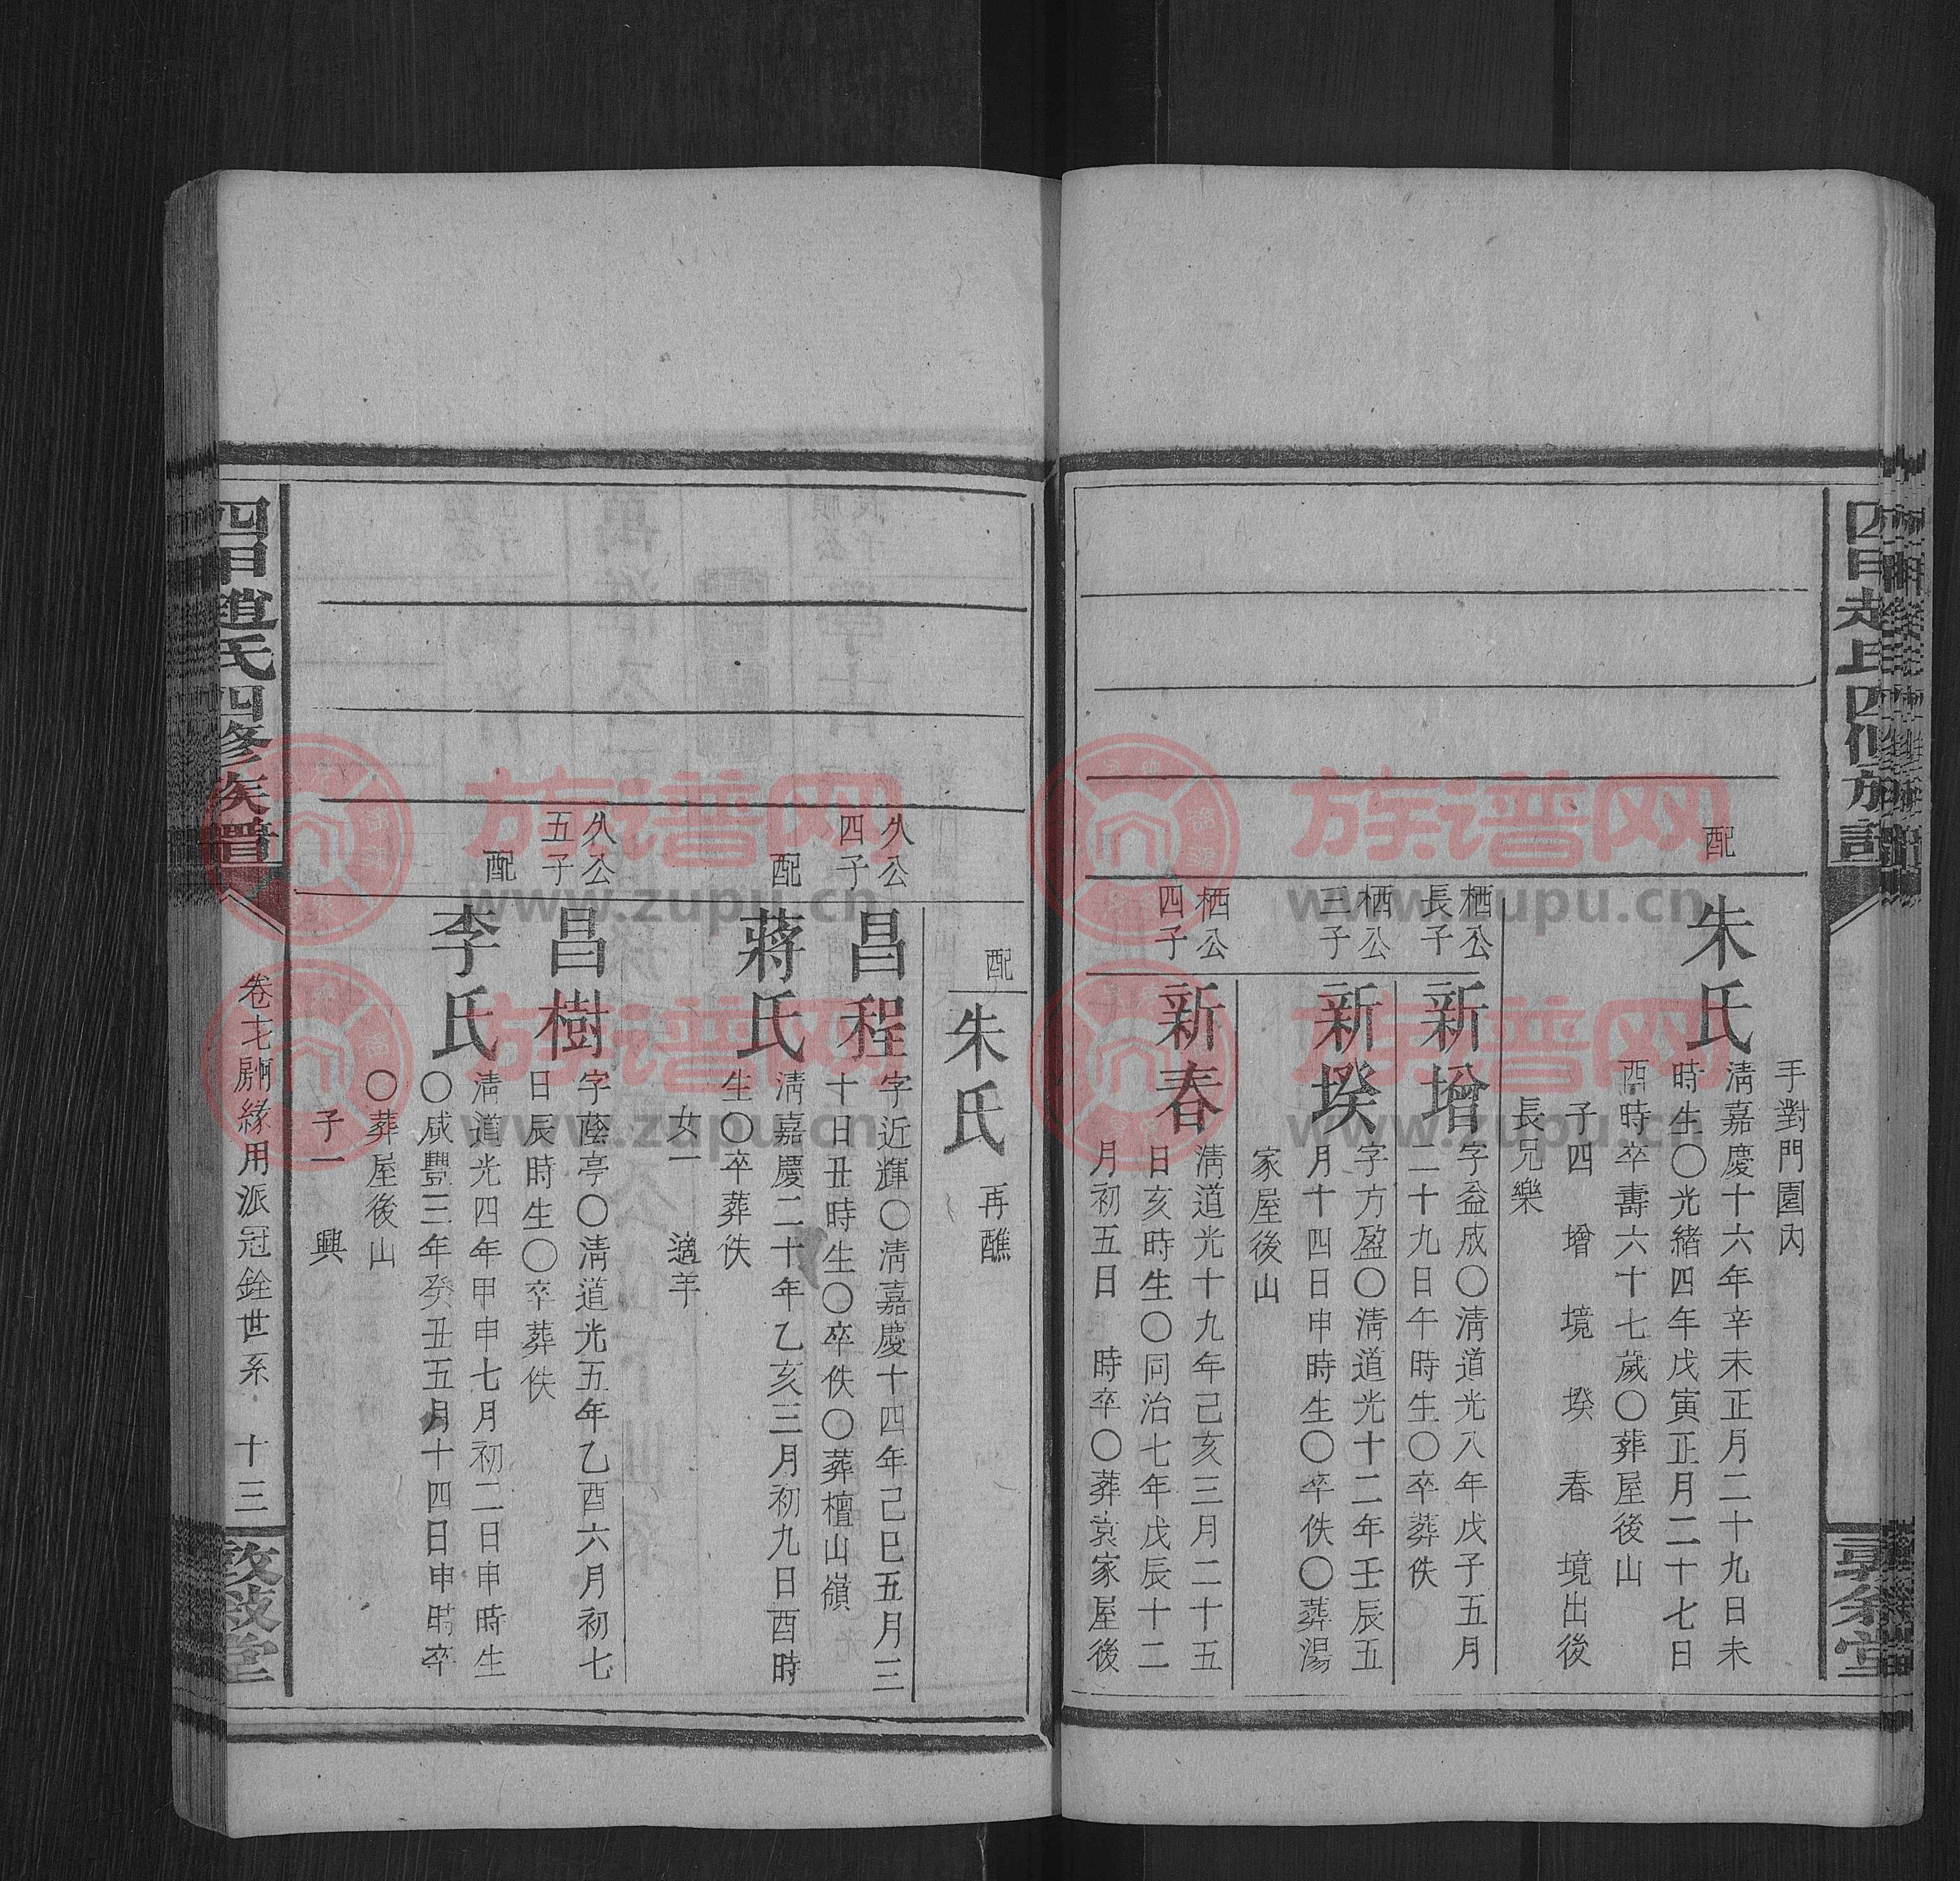 手對門園內
配
朱氏
清嘉慶十六年辛未正月二十九日未
時生〇光緒四年戊寅正月二十七日
酉時卒壽六十七歲〇葬屋後山
子四 增 境 堠 春 境出後
長兄樂
栖公
長子
新增
字益成〇清道光八年戊子五月
二十九日午時生〇卒葬佚
栖公
三子
新堠
字方盈〇清道光十二年壬辰五
月十四日申時生〇卒佚〇葬湯
家屋後山
栖公
四子
新春
清道光十九年己亥三月二十五
日亥時生〇同治七年戊辰十二
月初五日 時卒〇葬袁家屋後
配
朱氏
再醮
久公
四子
昌程
字近輝〇清嘉慶十四年己巳五月三
十日丑時生〇卒佚〇葬檀山嶺
配
蔣氏
清嘉慶二十年乙亥三月初九日酉時
生〇卒葬佚
女一 適羊
久公
五子
昌樹
字蔭亭〇清道光五年乙酉六月初七
日辰時生〇卒葬佚
配
李氏
清道光四年甲申七月初二日申時生
〇咸豐三年癸丑五月十四日申時卒
〇葬屋後山
子一 興
四甲趙氏四修族譜
卷七 緣用派冠銓世系 十三
敦敘堂
族谱网
www.zupu.cn
族谱网
www.zupu.cn
族谱网
www.zupu.cn
族谱网
www.zupu.cn